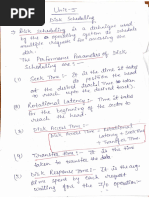 Unit-5
Disk Scheduling
→ Disk Scheduling is a technique used
by the operating system to schedule
multiple requests for accessing the
disk.
→ The Performance Parameters of Disk
Scheduling are :-
① Seek Time :- It is the time is taken
to position the head
at the desired head over
the desired track.
② Rotational Latency :- Time it takes
for the beginning of the sector to
reach the head.
③ Disk Access Time :-
Disk Access Time = Rotational
Latency + Seek Time
+ Transfer Time
④ Transfer Time :- It is the time
taken to transfer the data.
⑤ Disk Response Time :- It is the
of time spent by each request
waiting for the I/O operation